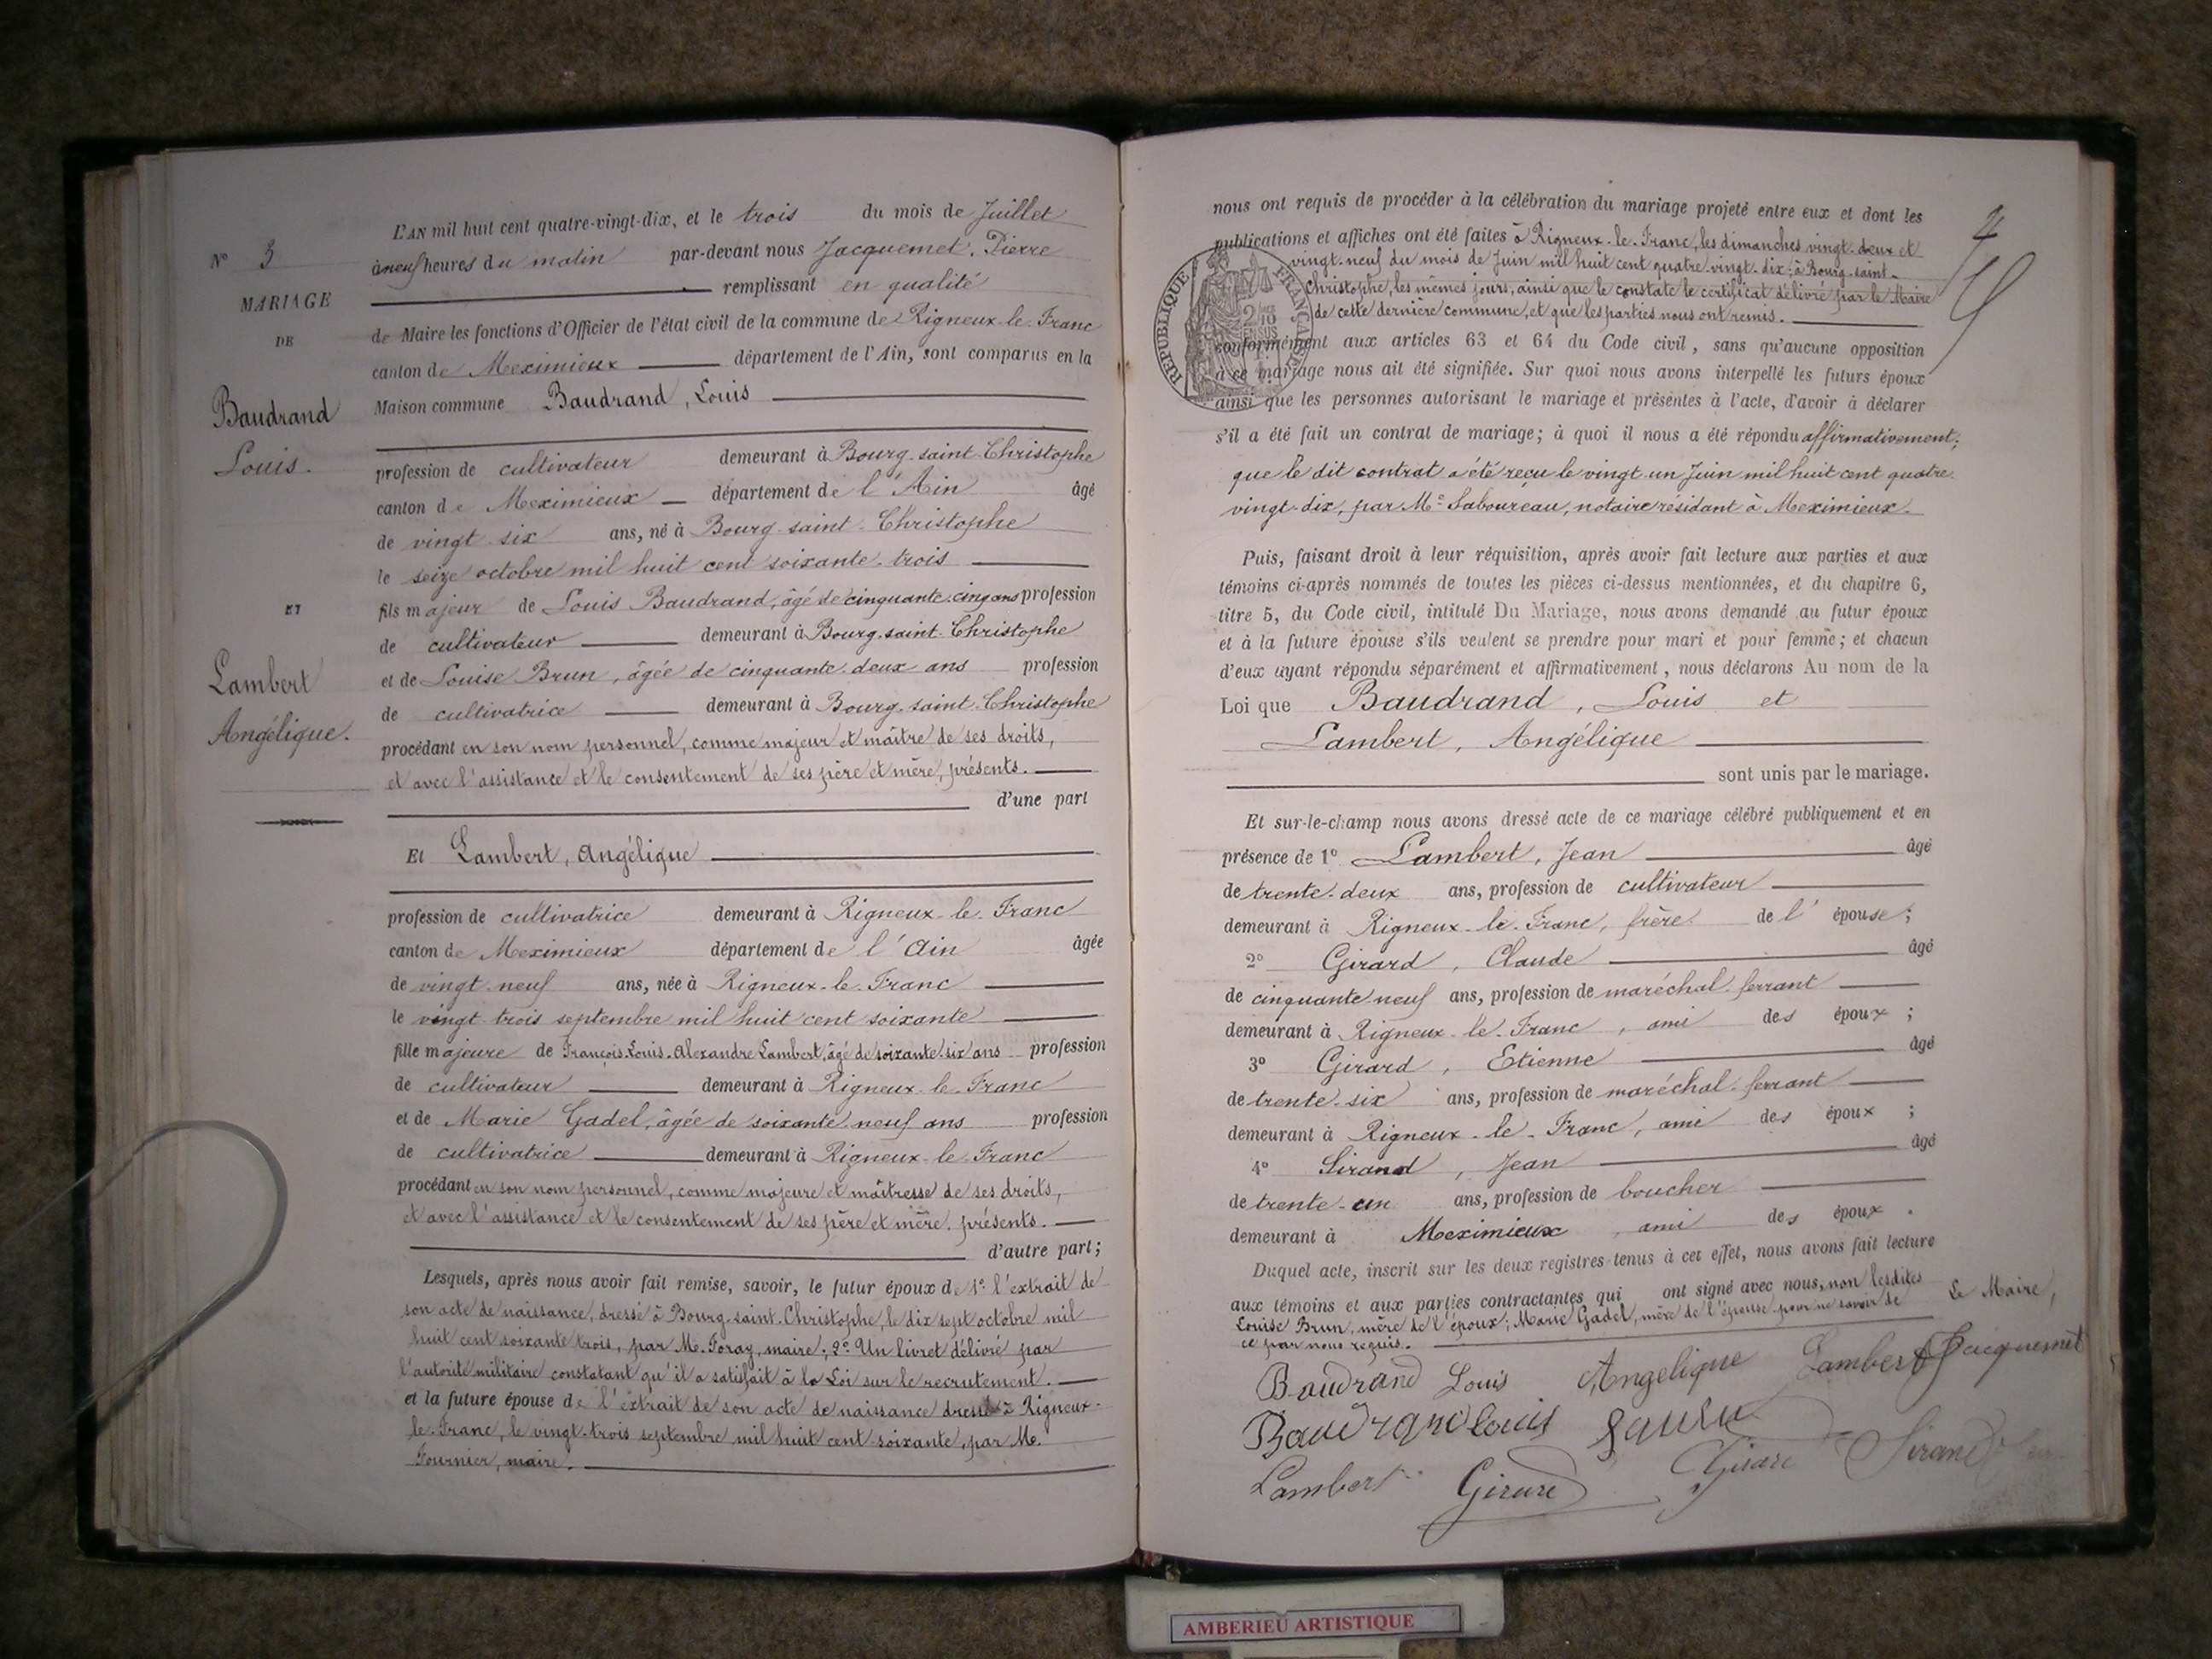 N° 3
MARIAGE
DE
Baudrand
Louis.
ET
Lambert
Angélique.
L'AN mil huit cent quatre-vingt-dix, et le trois du mois de Juillet
à neuf heures du matin par-devant nous Jacquemet, Pierre
remplissant en qualité
de Maire les fonctions d'Officier de l'état civil de la commune de Rigneux-le-Franc
canton de Meximieux département de l'Ain, sont comparus en la
Maison commune Baudrand, Louis
profession de cultivateur demeurant à Bourg-saint-Christophe
canton de Meximieux département de l'Ain âgé
de vingt-six ans, né à Bourg-saint-Christophe
le seize octobre mil huit cent soixante-trois
fils majeur de Louis Baudrand, âgé de cinquante-cinq ans profession
de cultivateur demeurant à Bourg-saint-Christophe
et de Louise Brun, âgée de cinquante-deux ans profession
de cultivatrice demeurant à Bourg-saint-Christophe
procédant en son nom personnel, comme majeur et maître de ses droits,
et avec l'assistance et le consentement de ses père et mère, présents.
d'une part
Et Lambert, Angélique
profession de cultivatrice demeurant à Rigneux-le-Franc
canton de Meximieux département de l'Ain âgée
de vingt-neuf ans, née à Rigneux-le-Franc
le vingt-trois septembre mil huit cent soixante
fille majeure de François-Louis-Alexandre Lambert, âgé de soixante-six ans profession
de cultivateur demeurant à Rigneux-le-Franc
et de Marie Gadel, âgée de soixante-neuf ans profession
de cultivatrice demeurant à Rigneux-le-Franc
procédant en son nom personnel, comme majeure et maîtresse de ses droits,
et avec l'assistance et le consentement de ses père et mère, présents.
d'autre part;
Lesquels, après nous avoir fait remise, savoir, le futur époux de 1° l'extrait de
son acte de naissance, dressé à Bourg-saint-Christophe, le dix-sept octobre mil
huit cent soixante-trois, par M. Foray, maire; 2° Un livret délivré par
l'autorité militaire constatant qu'il a satisfait à la Loi sur le recrutement.
et la future épouse de l'extrait de son acte de naissance dressé à Rigneux-
le-Franc, le vingt-trois septembre mil huit cent soixante, par M.
Fournier, maire.
nous ont requis de procéder à la célébration du mariage projeté entre eux et dont les
publications et affiches ont été faites à Rigneux-le-Franc, les dimanches vingt-deux et
vingt-neuf du mois de Juin mil huit cent quatre-vingt-dix; à Bourg-saint-
Christophe, les mêmes jours, ainsi que le constate le certificat délivré par le Maire
de cette dernière commune, et que les parties nous ont remis.
RÉPUBLIQUE FRANÇAISE
conformément aux articles 63 et 64 du Code civil, sans qu'aucune opposition
à ce mariage nous ait été signifiée. Sur quoi nous avons interpellé les futurs époux
ainsi que les personnes autorisant le mariage et présentes à l'acte, d'avoir à déclarer
s'il a été fait un contrat de mariage; à quoi il nous a été répondu affirmativement;
que le dit contrat a été reçu le vingt-un Juin mil huit cent quatre-
vingt-dix, par Me Laboureau, notaire résidant à Meximieux.
Puis, faisant droit à leur réquisition, après avoir fait lecture aux parties et aux
témoins ci-après nommés de toutes les pièces ci-dessus mentionnées, et du chapitre 6,
titre 5, du Code civil, intitulé Du Mariage, nous avons demandé au futur époux
et à la future épouse s'ils veulent se prendre pour mari et pour femme; et chacun
d'eux ayant répondu séparément et affirmativement, nous déclarons Au nom de la
Loi que Baudrand, Louis et
Lambert, Angélique
sont unis par le mariage.
Et sur-le-champ nous avons dressé acte de ce mariage célébré publiquement et en
présence de 1° Lambert, Jean âgé
de trente-deux ans, profession de cultivateur
demeurant à Rigneux-le-Franc, frère de l'épouse;
2° Girard, Claude âgé
de cinquante-neuf ans, profession de maréchal-ferrant
demeurant à Rigneux-le-Franc, ami des époux;
3° Girard, Etienne âgé
de trente-six ans, profession de maréchal-ferrant
demeurant à Rigneux-le-Franc, ami des époux;
4° Sirand, Jean âgé
de trente-un ans, profession de boucher
demeurant à Meximieux, ami des époux.
Duquel acte, inscrit sur les deux registres tenus à cet effet, nous avons fait lecture
aux témoins et aux parties contractantes qui ont signé avec nous, non lesdites
Louise Brun, mère de l'époux; Marie Gadel, mère de l'épouse pour ne savoir de
ce par nous requis.
Le Maire,
Baudrand Louis Angelique Lambert Jacquemet
Baudrand Louis
Lambert Girard Girard Sirand
AMBERIEU ARTISTIQUE